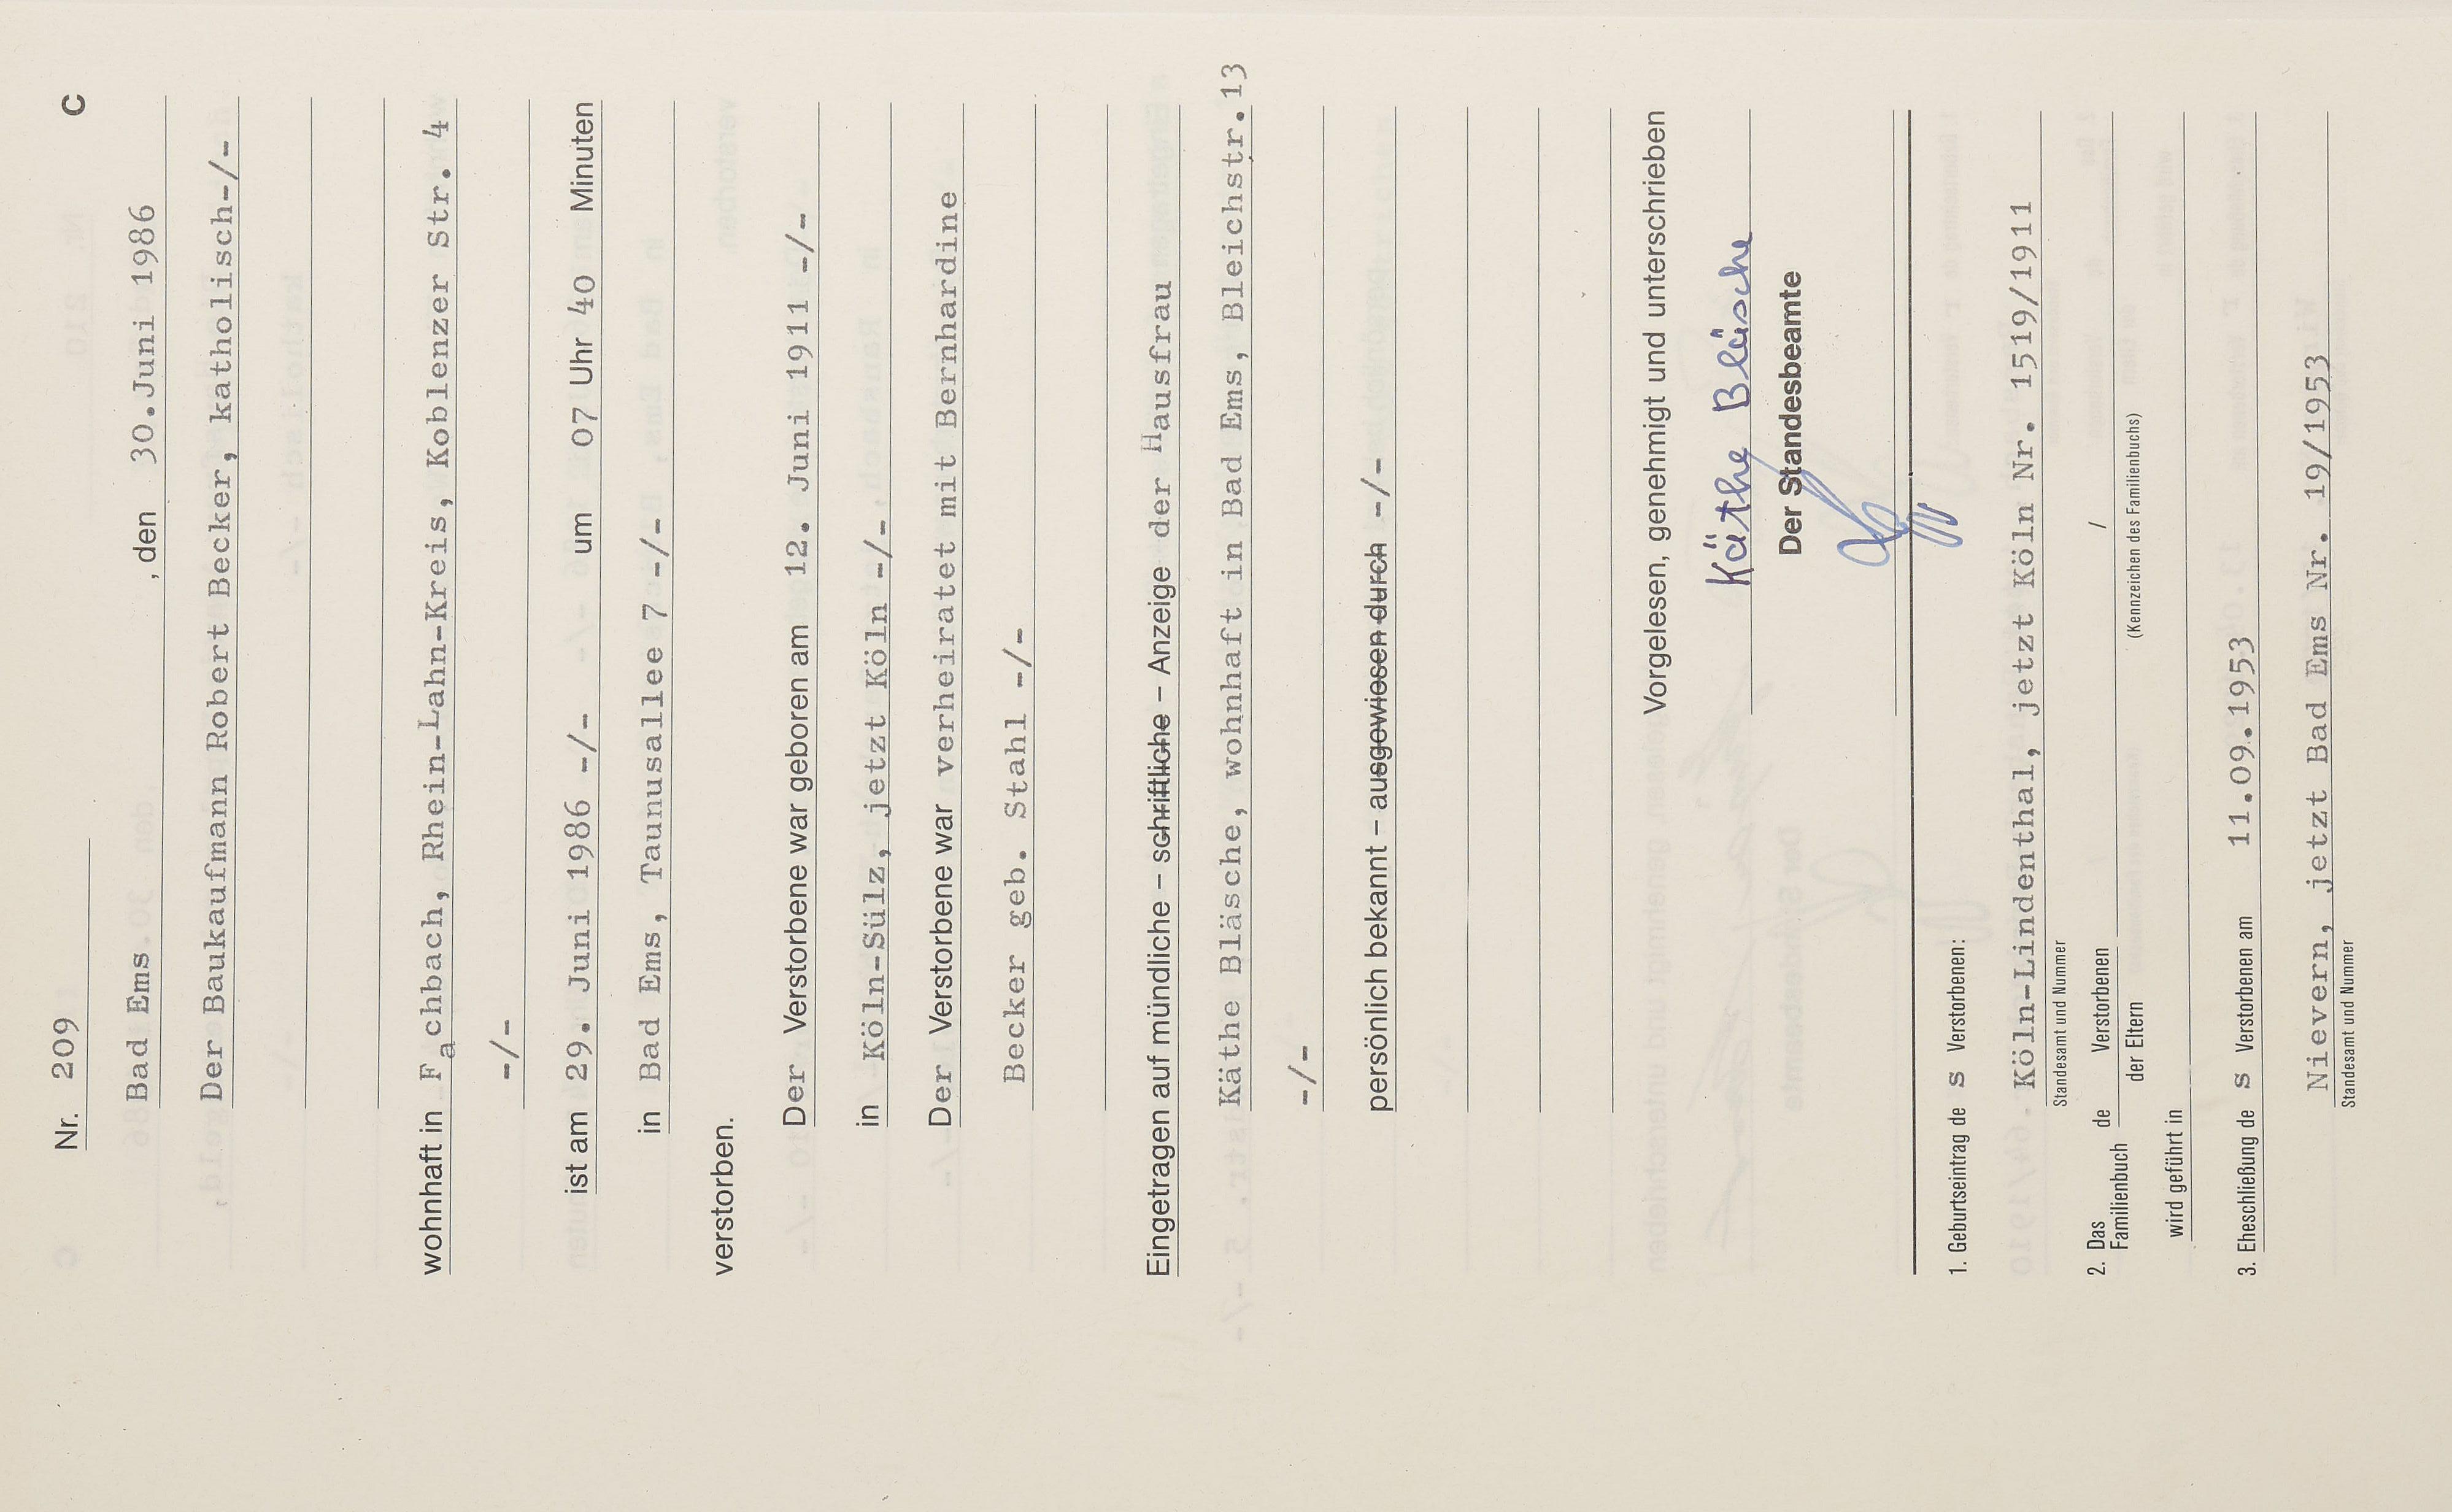 Nr. 209 C
Bad Ems , den 30.Juni 1986
Der Baukaufmann Robert Becker, katholisch-/-
wohnhaft in Fachbach, Rhein-Lahn-Kreis, Koblenzer Str. 4
-/-
ist am 29. Juni 1986 -/- um 07 Uhr 40 Minuten
in Bad Ems, Taunusallee 7 -/-
verstorben.
Der Verstorbene war geboren am 12. Juni 1911 -/-
in Köln-Sülz, jetzt Köln -/-
Der Verstorbene war verheiratet mit Bernhardine
Becker geb. Stahl -/-
Eingetragen auf mündliche – schriftliche – Anzeige der Hausfrau
Käthe Bläsche, wohnhaft in Bad Ems, Bleichstr.13
-/-
persönlich bekannt – ausgewiesen durch -/-
Vorgelesen, genehmigt und unterschrieben
Käthe Bläsche
Der Standesbeamte
1. Geburtseintrag de s Verstorbenen:
Köln-Lindenthal, jetzt Köln Nr. 1519/1911
Standesamt und Nummer
2. Das Familienbuch de Verstorbenen /
der Eltern (Kennzeichen des Familienbuchs)
wird geführt in
3. Eheschließung de s Verstorbenen am 11.09.1953
Nievern, jetzt Bad Ems Nr. 19/1953
Standesamt und Nummer